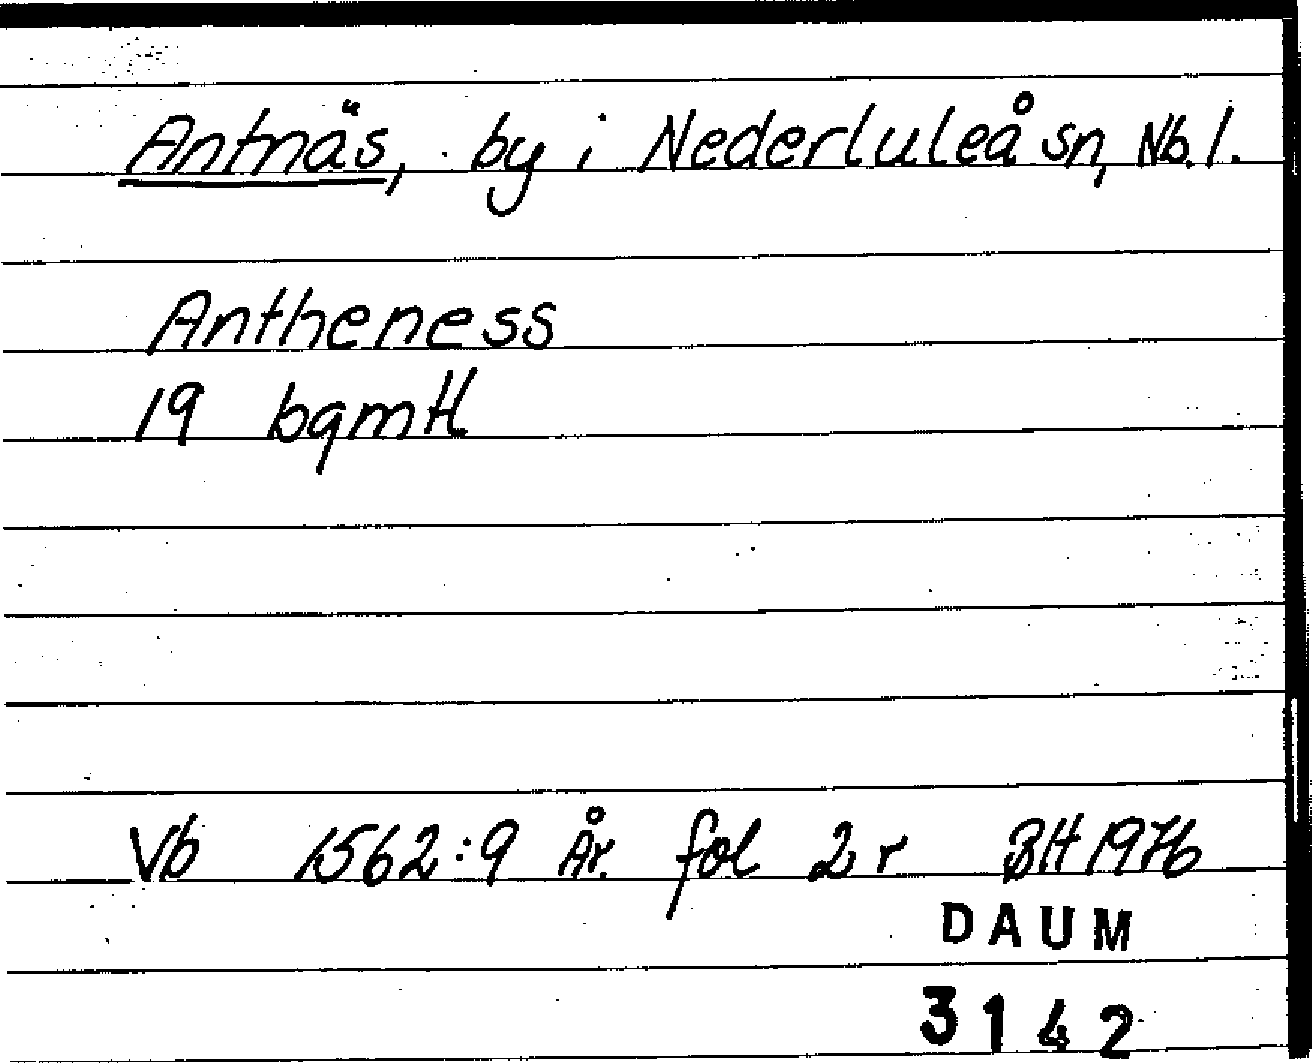 Antnäs, by i Nederluleå sn, Nb. l.
Antheness
19 bqmtl
Vb 1562:9 År. fol 2 r BH 1976
DAUM
3142